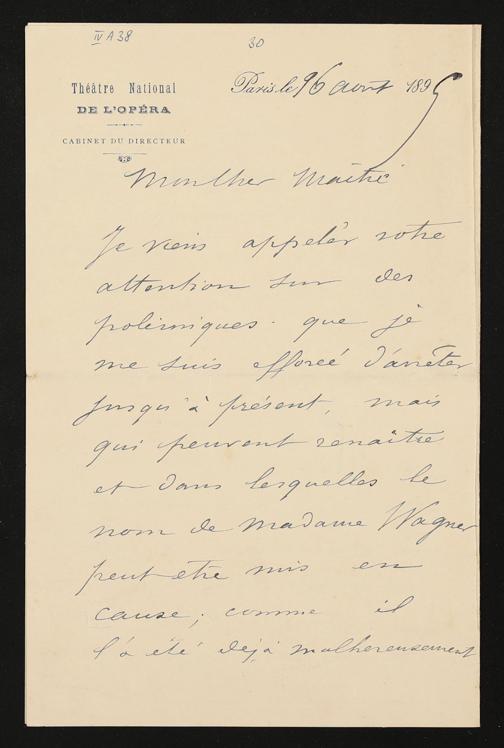 IV A 38
30
Théâtre National
DE L'OPÉRA
CABINET DU DIRECTEUR
Paris, le 26 août 1895
Mon cher Maître
Je viens appeler votre
attention sur des
polémiques que je
me suis efforcé d'arrêter
jusqu'à présent, mais
qui peuvent renaître
et dans lesquelles le
nom de Madame Wagner
peut-être mis en
cause; comme il
l'a été déjà malheureusement